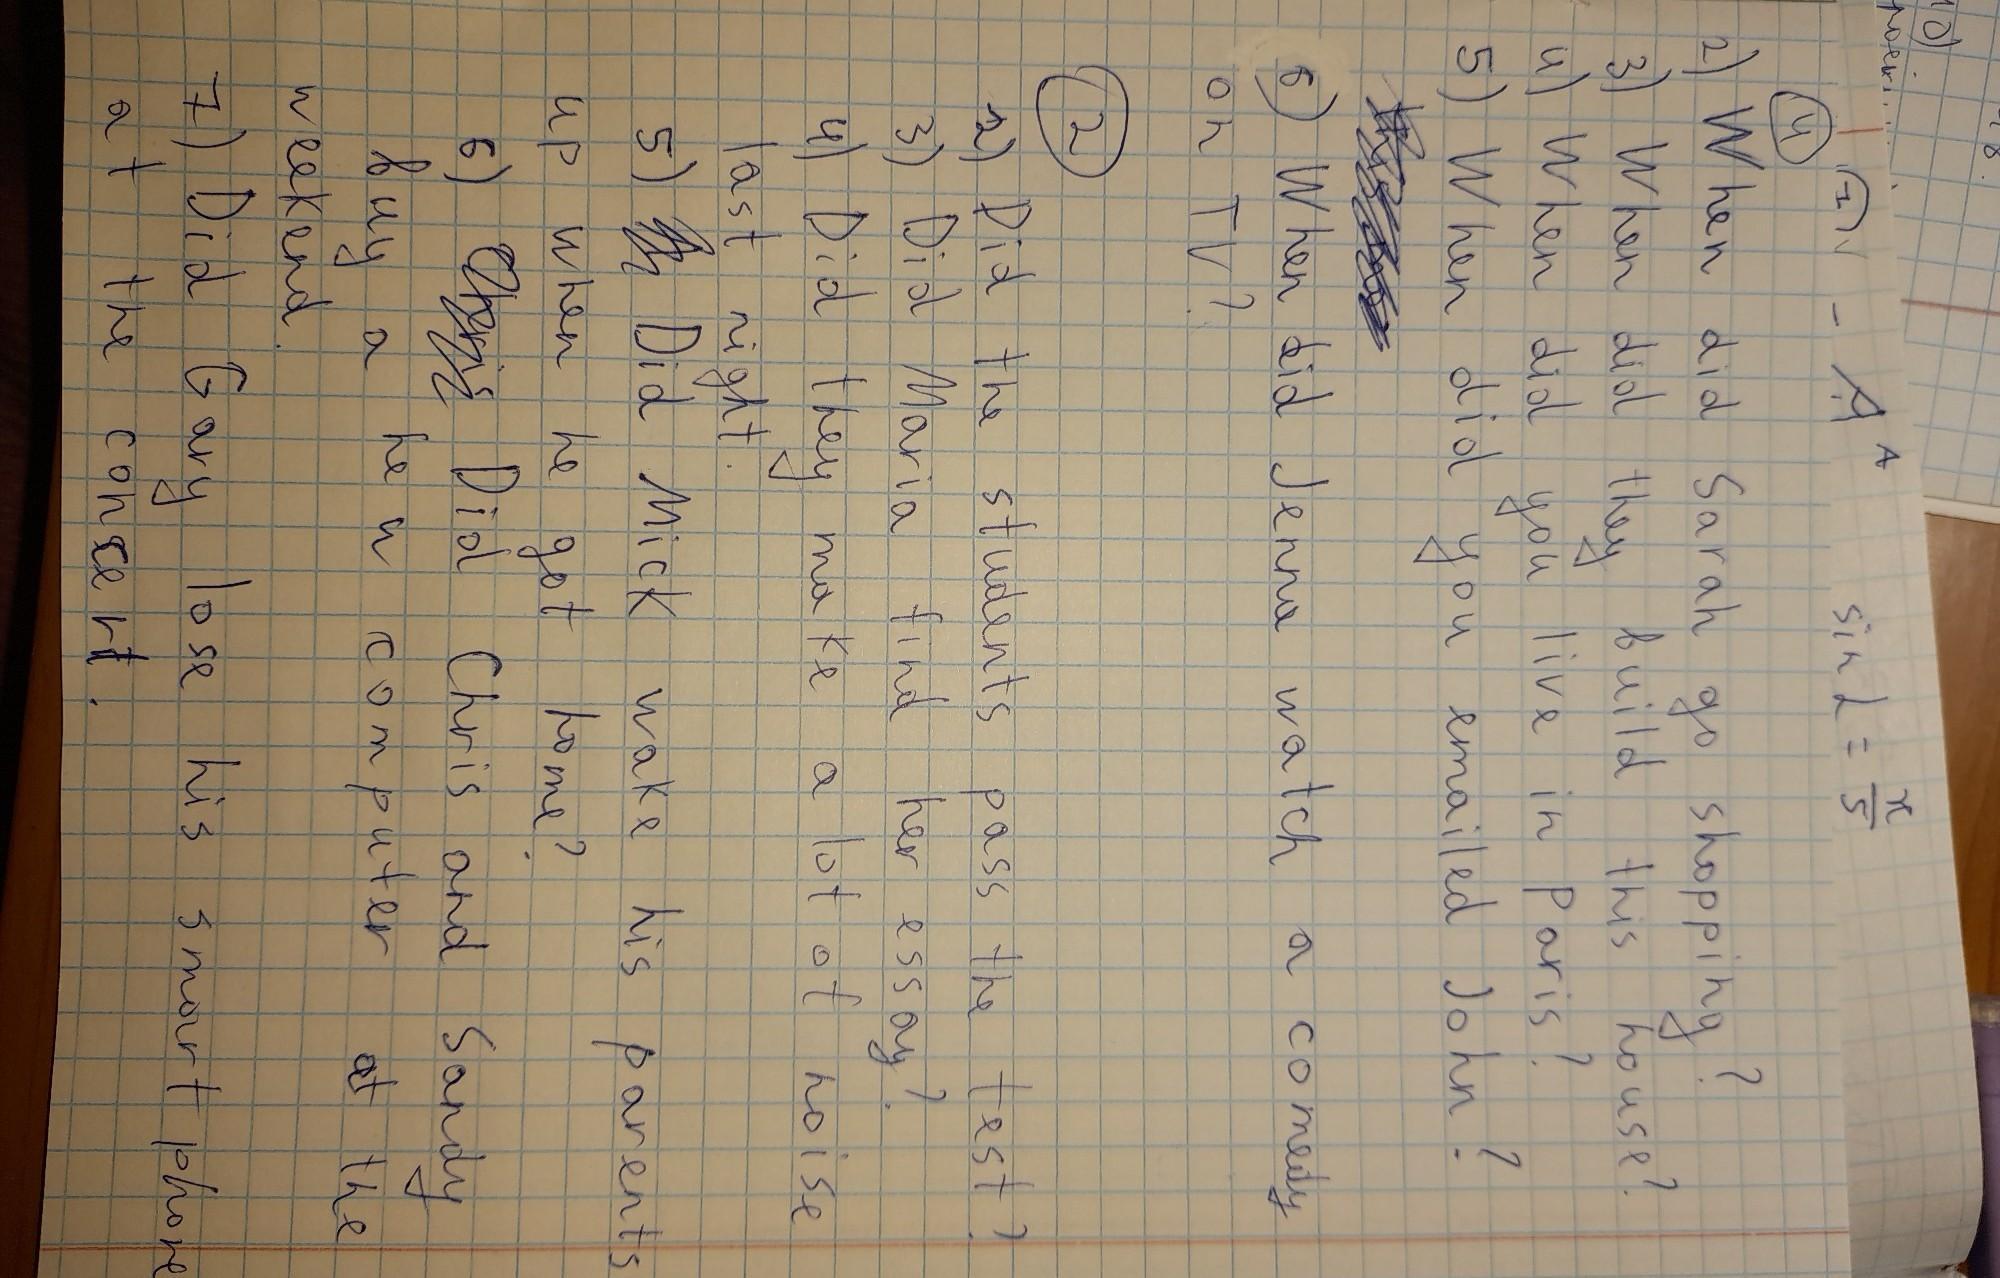 sin α = x/5
④
2) When did Sarah go shopping?
3) When did they build this house?
4) When did you live in Paris?
5) When did you emailed John?
6) When did Jenna watch a comedy
on TV?
②
2) Did the students pass the test?
3) Did Maria find her essay?
4) Did they make a lot of noise
last night.
5) Did Mick wake his parents
up when he got home?
6) Did Chris and Sandy
buy a new computer at the
weekend.
7) Did Gary lose his smart phone
at the consert.